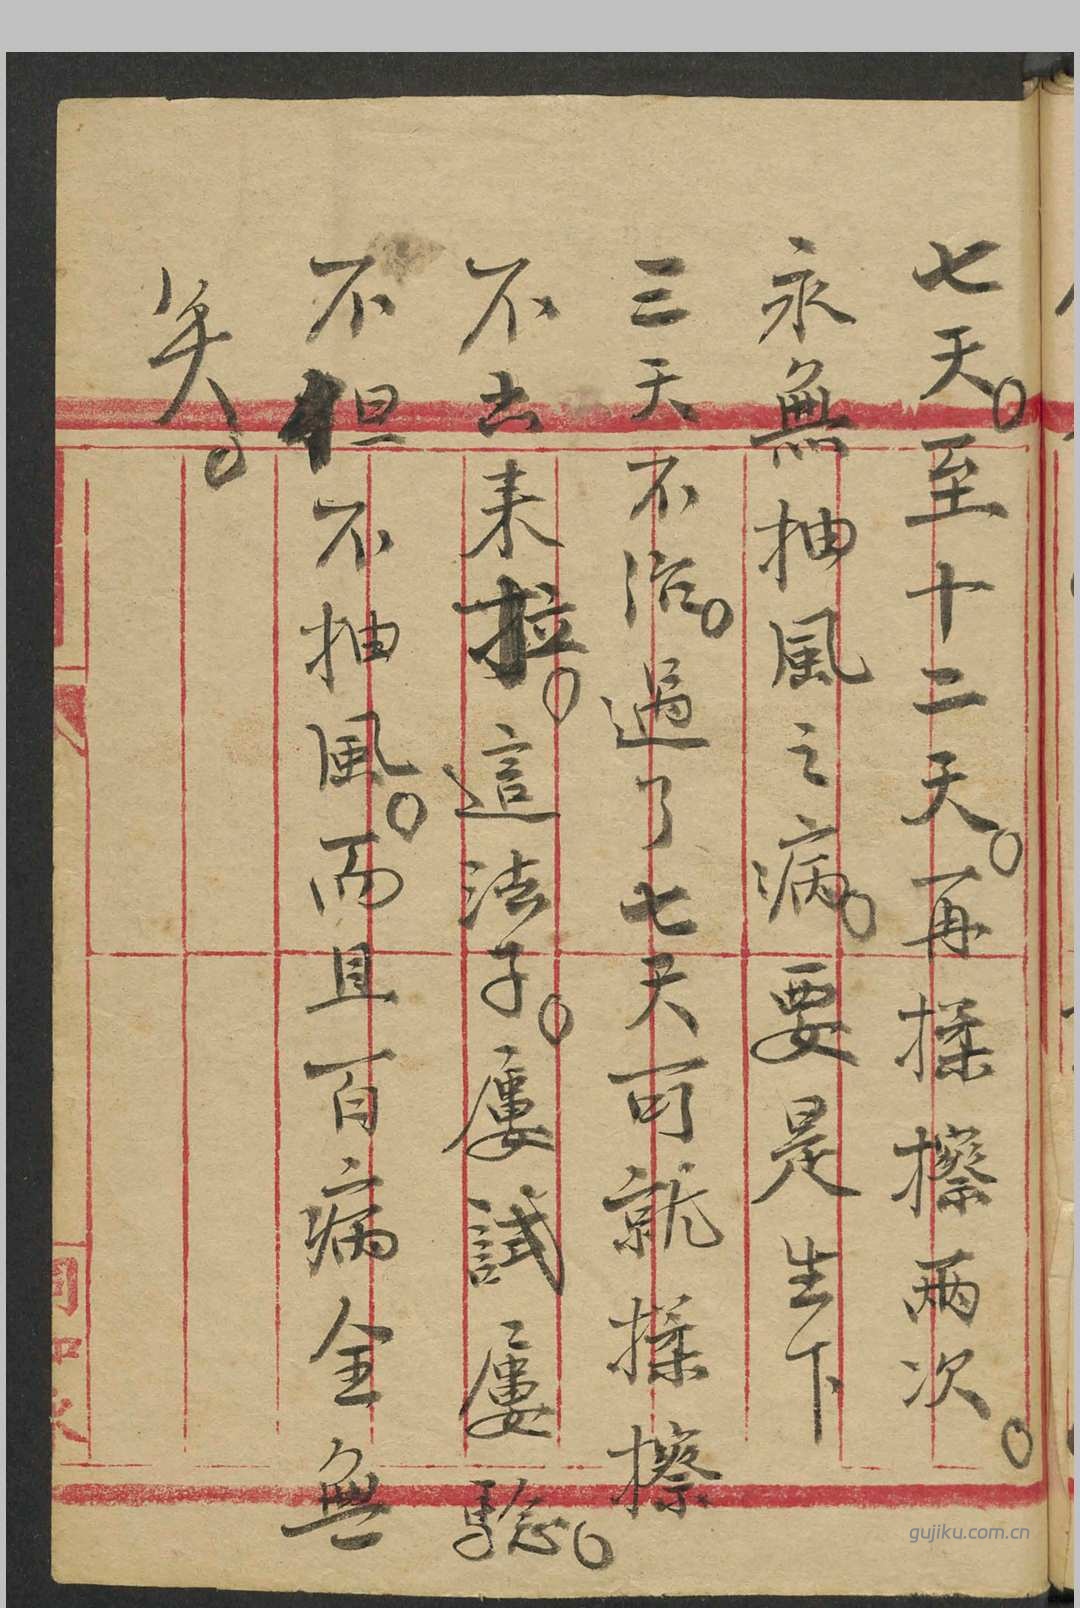 七天。至十二天。再揉擦兩次。
永無抽風之病。要是生下
三天不治。過了七天可就揉擦
不出来拉。這法子。屢試屢驗。
不但不抽風。而且百病全無
矣。
gujiku.com.cn